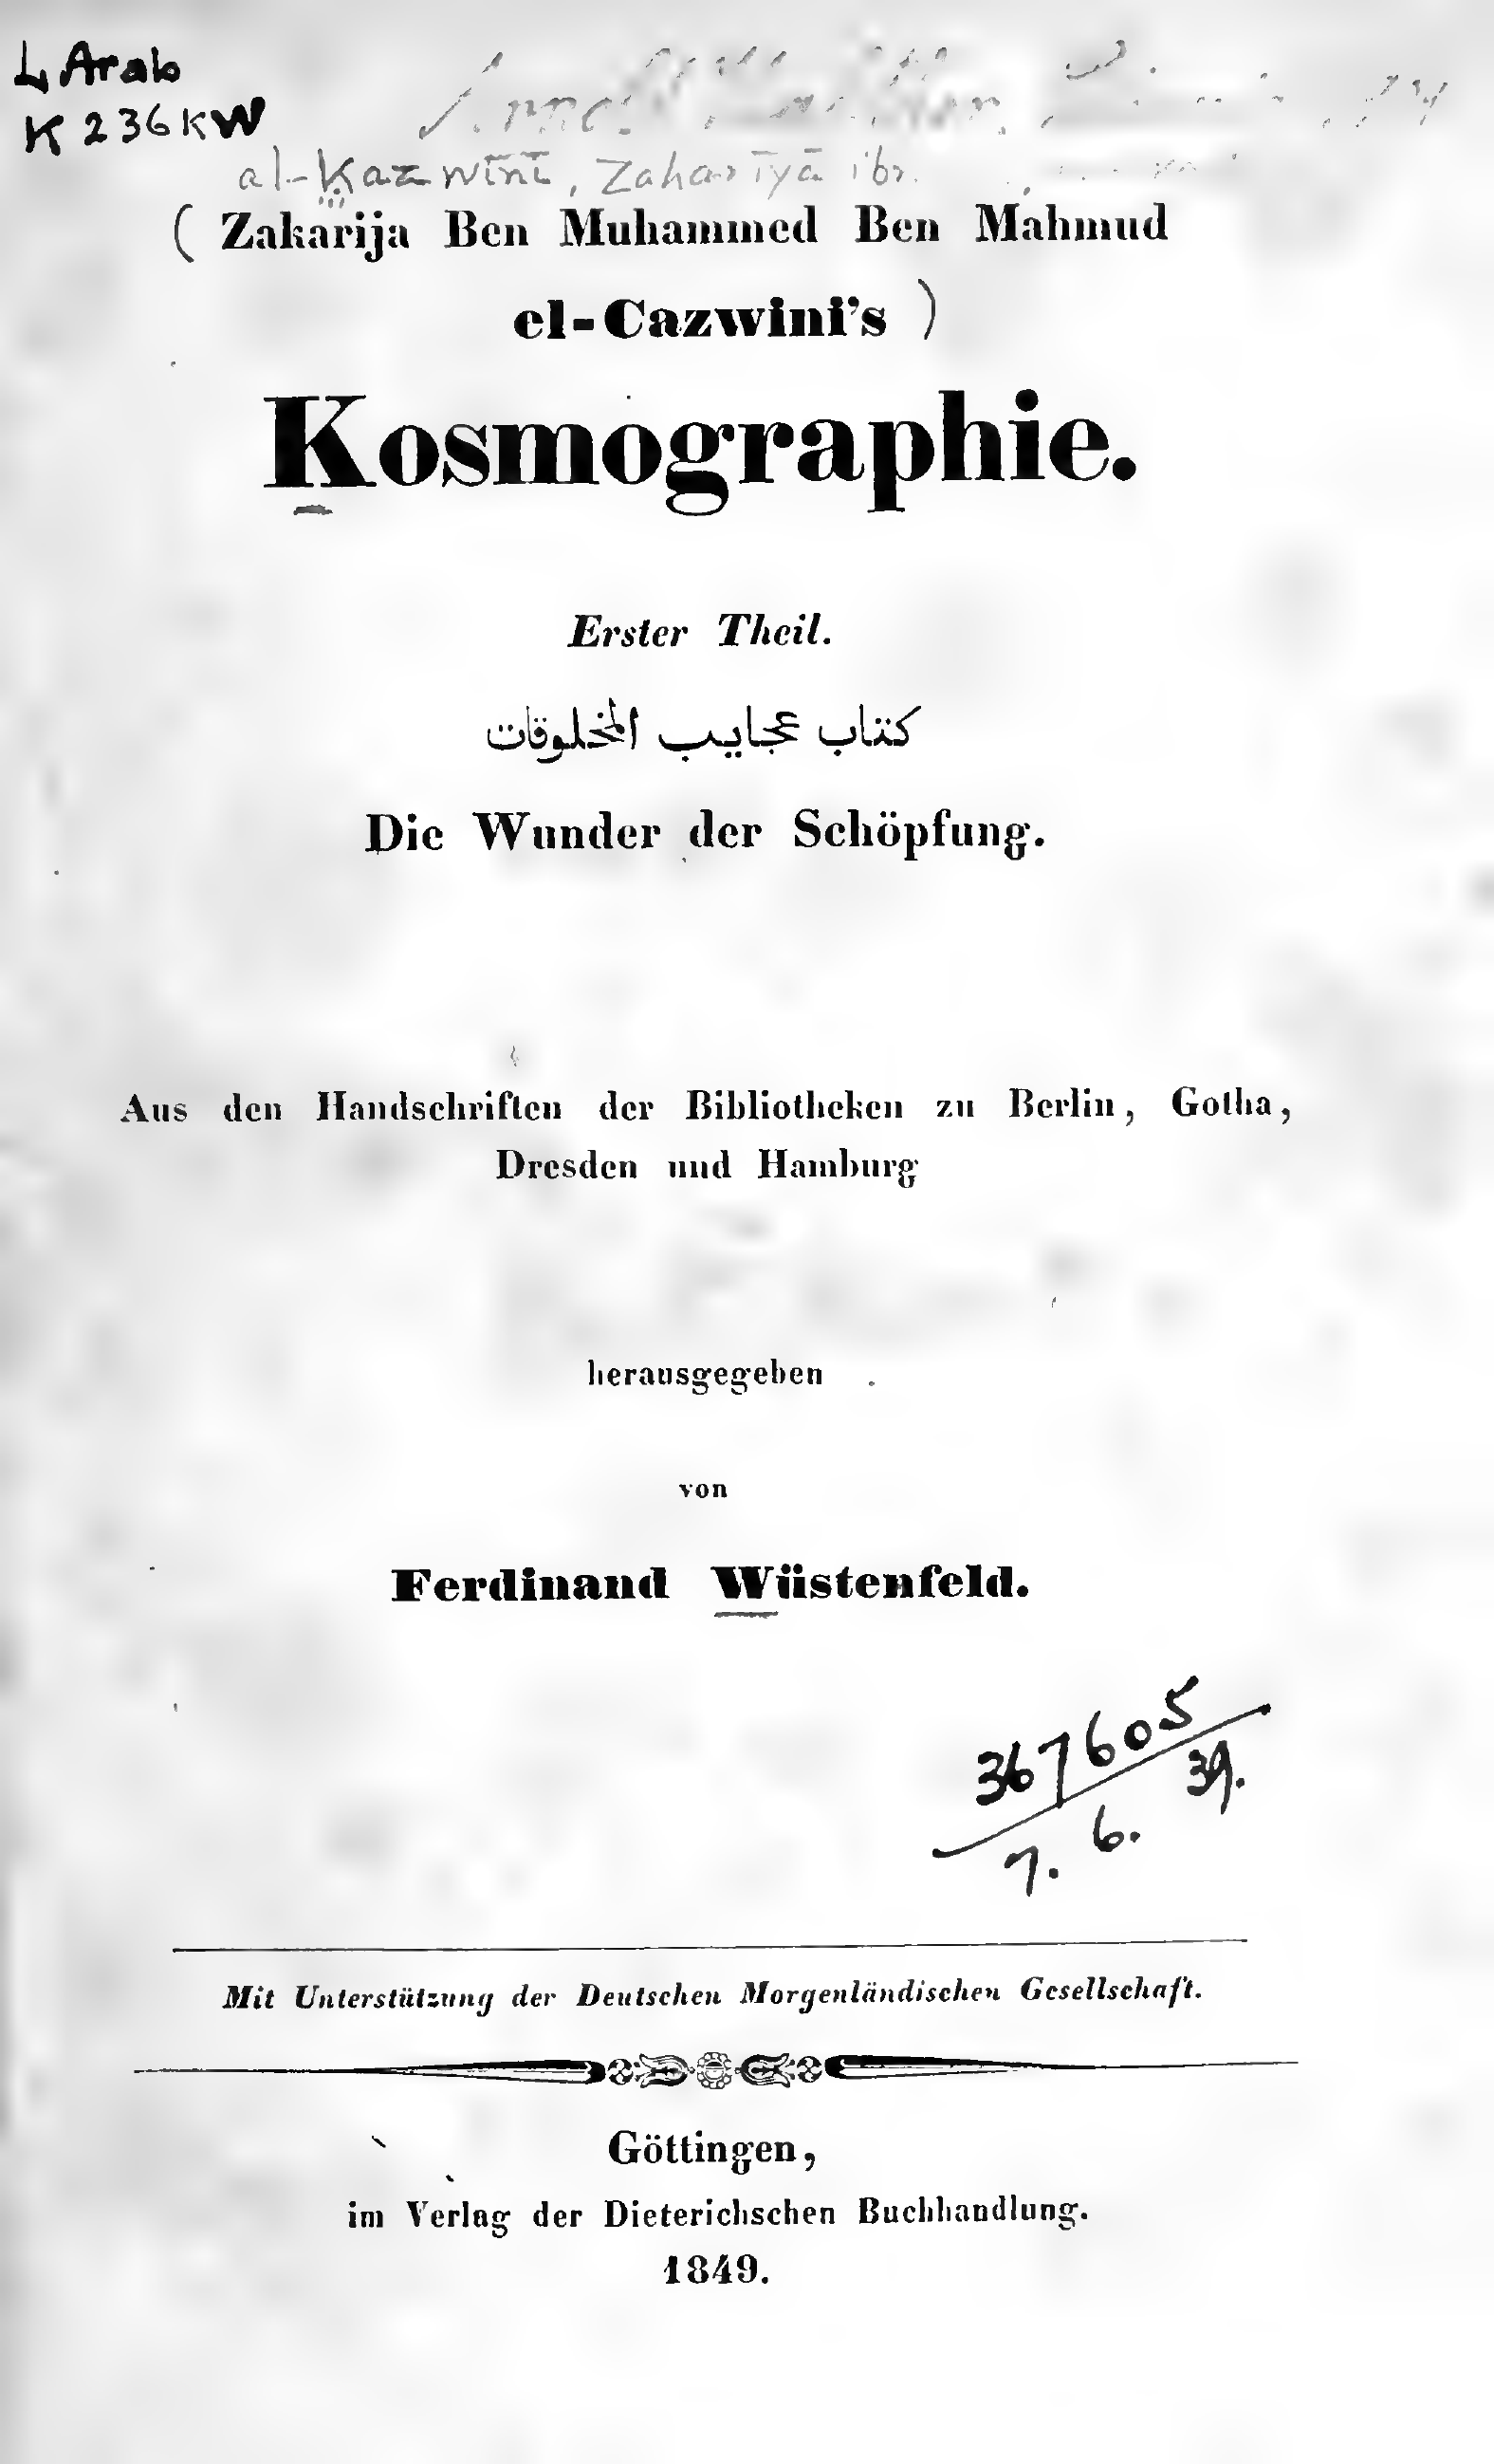 L Arab
K 236 kW
al-Ḳazwīnī, Zakarīyā ibn
( Zakarija Ben Muhammed Ben Mahmud
el-Cazwini's )
Kosmographie.
Erster Theil.
كتاب عجايب المخلوقات
Die Wunder der Schöpfung.
Aus den Handschriften der Bibliotheken zu Berlin, Gotha,
Dresden und Hamburg
herausgegeben
von
Ferdinand Wüstenfeld.
367605
7. 6. 39.
Mit Unterstützung der Deutschen Morgenländischen Gesellschaft.
Göttingen,
im Verlag der Dieterichschen Buchhandlung.
1849.